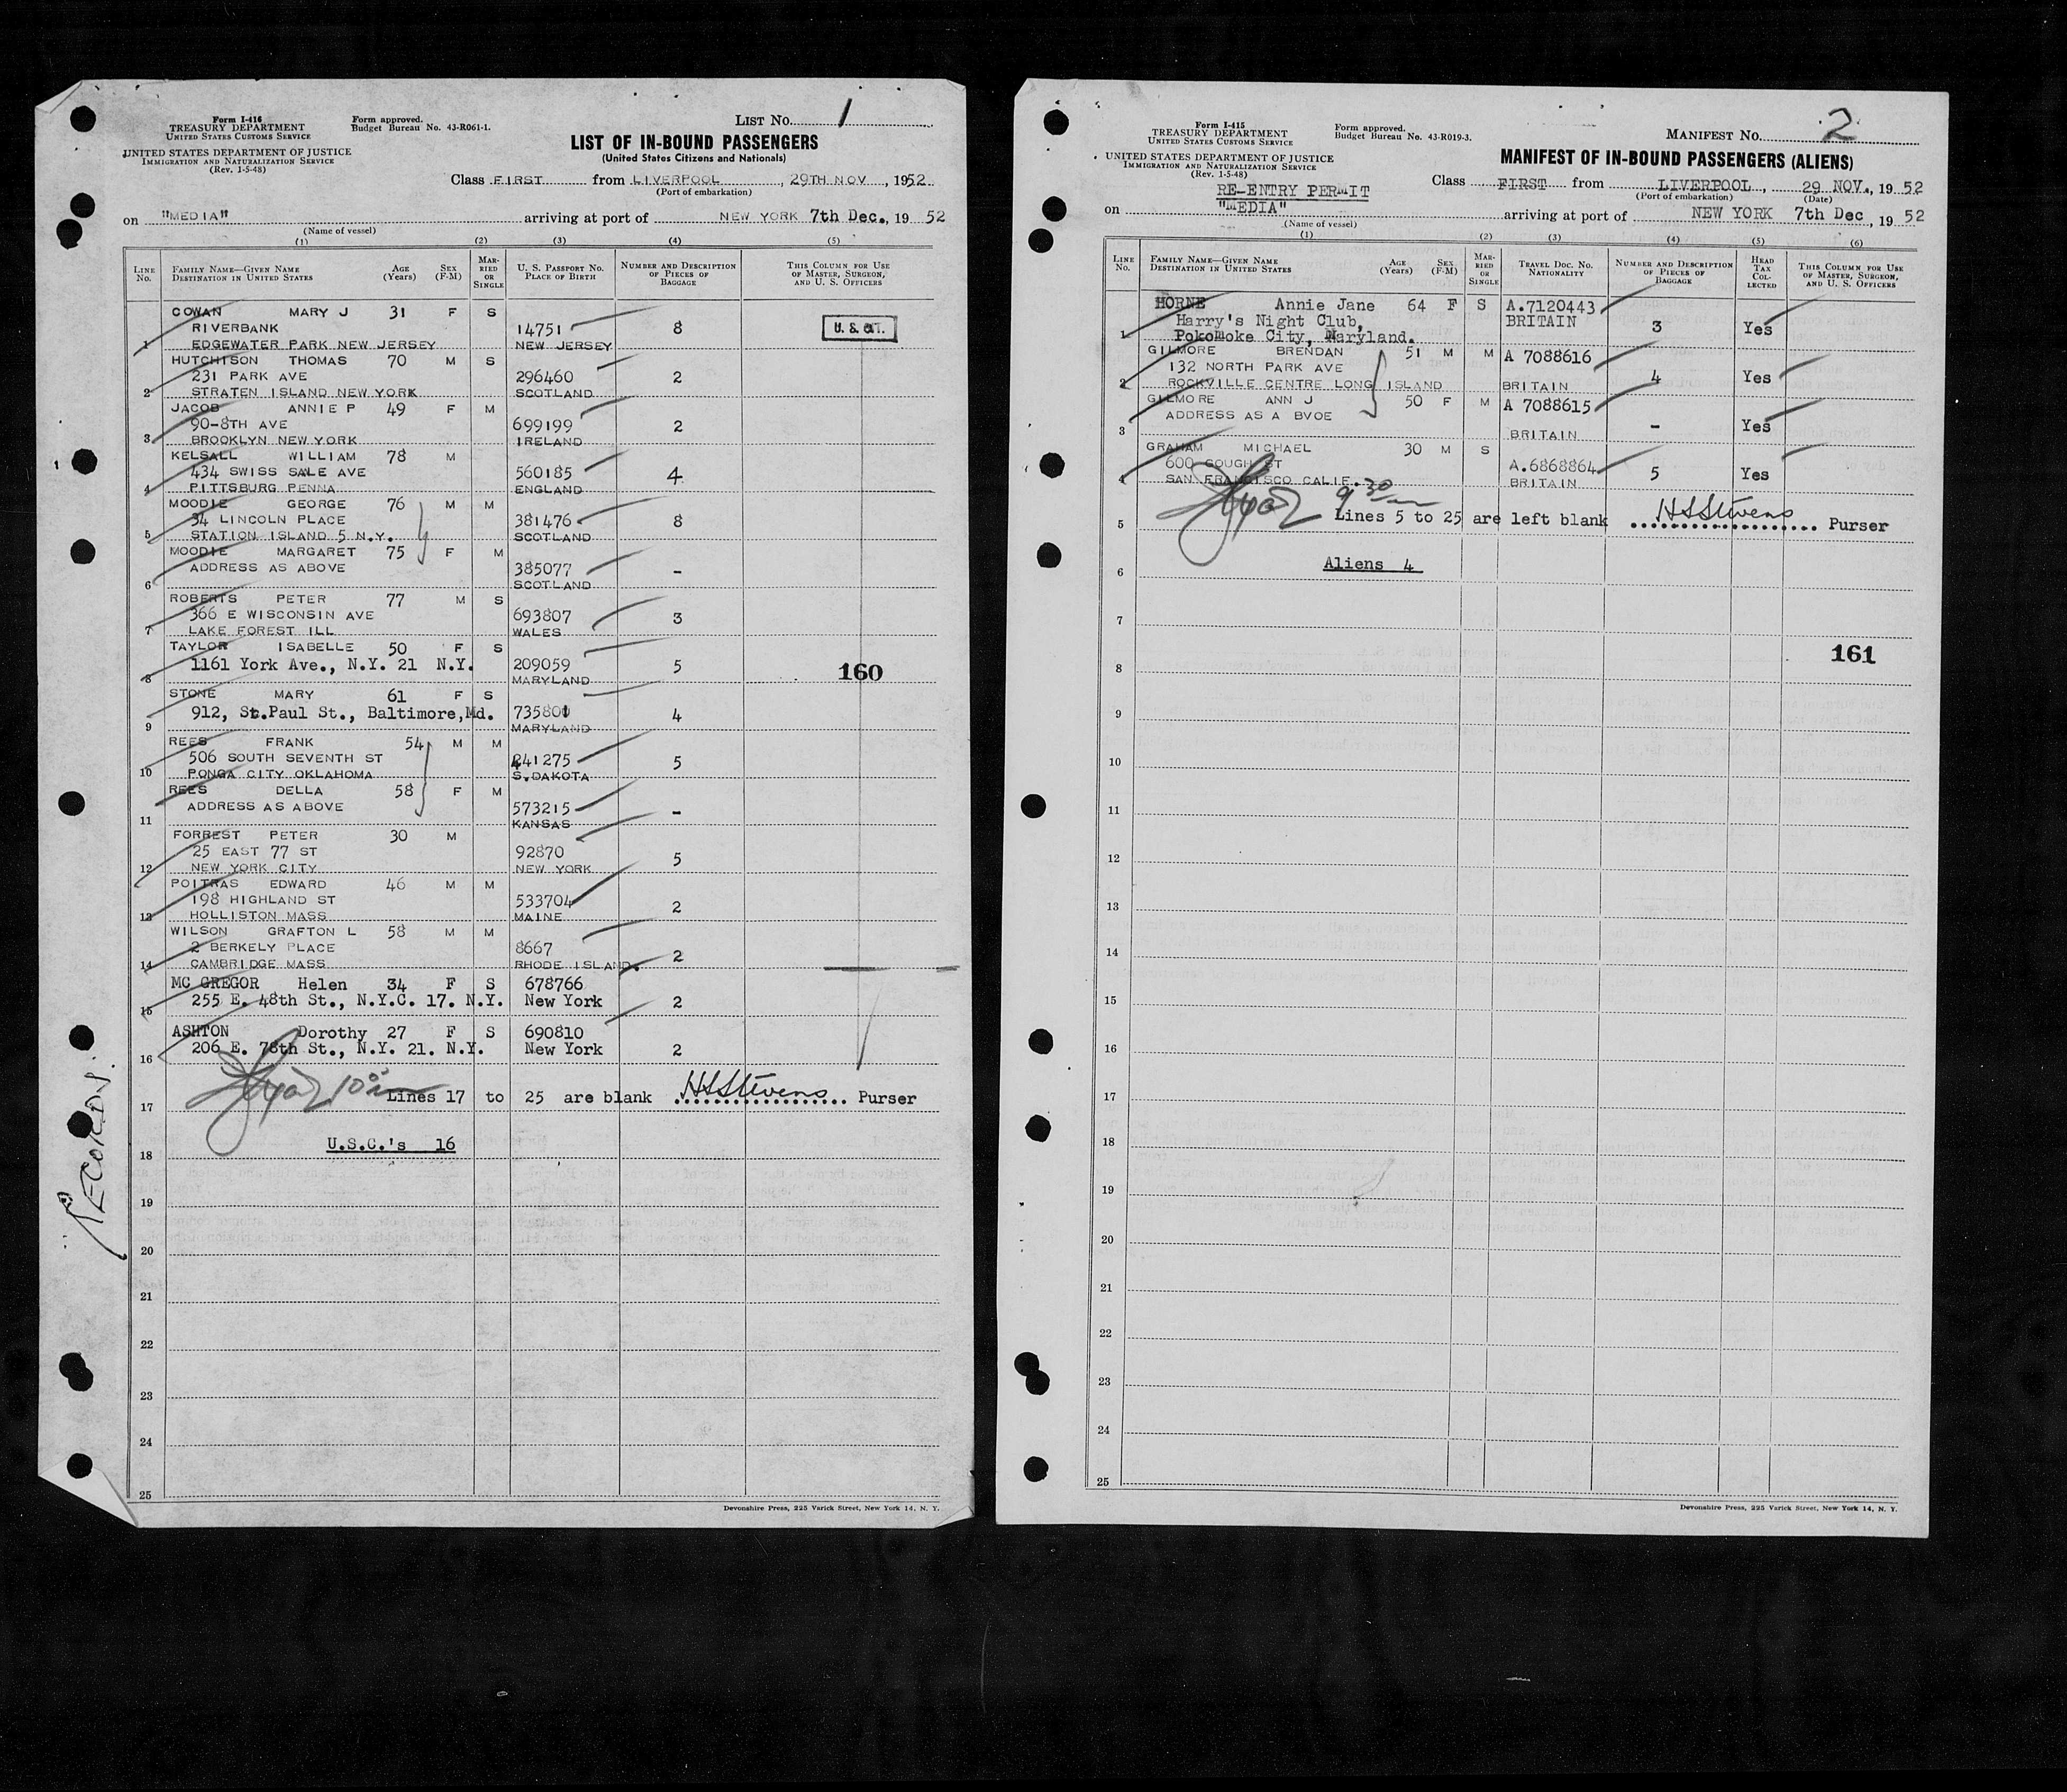 Form I-416
TREASURY DEPARTMENT
UNITED STATES CUSTOMS SERVICE
UNITED STATES DEPARTMENT OF JUSTICE
IMMIGRATION AND NATURALIZATION SERVICE
(Rev. 1-5-48)
Form approved.
Budget Bureau No. 43-R061-1.
LIST No. 1
LIST OF IN-BOUND PASSENGERS
(United States Citizens and Nationals)
Class FIRST from LIVERPOOL, 29TH NOV, 1952
(Port of embarkation)
on "MEDIA" arriving at port of NEW YORK 7th Dec., 19 52
(Name of vessel)
(1) (2) (3) (4) (5)
LINE No. FAMILY NAME—GIVEN NAME DESTINATION IN UNITED STATES AGE (Years) SEX (F-M) MARRIED OR SINGLE U. S. PASSPORT NO. PLACE OF BIRTH NUMBER AND DESCRIPTION OF PIECES OF BAGGAGE THIS COLUMN FOR USE OF MASTER, SURGEON, AND U. S. OFFICERS
COWAN MARY J 31 F S
RIVERBANK 14751 8
1 EDGEWATER PARK NEW JERSEY NEW JERSEY
HUTCHISON THOMAS 70 M S
231 PARK AVE 296460 2
2 STRATEN ISLAND NEW YORK SCOTLAND
JACOB ANNIE P 49 F M
90-8TH AVE 699199 2
3 BROOKLYN NEW YORK IRELAND
KELSALL WILLIAM 78 M
434 SWISS SALE AVE 560185 4
4 PITTSBURG PENNA ENGLAND
MOODIE GEORGE 76 M M
34 LINCOLN PLACE 381476 8
5 STATION ISLAND 5 N.Y. SCOTLAND
MOODIE MARGARET 75 F M
ADDRESS AS ABOVE 385077 -
6 SCOTLAND
ROBERTS PETER 77 M S
366 E WISCONSIN AVE 693807 3
7 LAKE FOREST ILL WALES
TAYLOR ISABELLE 50 F S
1161 York Ave., N.Y. 21 N.Y. 209059 5 160
8 MARYLAND
STONE MARY 61 F S
912, St.Paul St., Baltimore,Md. 735801 4
9 MARYLAND
REES FRANK 54 M M
506 SOUTH SEVENTH ST 241275 5
10 PONGA CITY OKLAHOMA S.DAKOTA
REES DELLA 58 F M
ADDRESS AS ABOVE 573215 -
11 KANSAS
FORREST PETER 30 M
25 EAST 77 ST 92870 5
12 NEW YORK CITY NEW YORK
POITRAS EDWARD 46 M M
198 HIGHLAND ST 533704 2
13 HOLLISTON MASS MAINE
WILSON GRAFTON L 58 M M
2 BERKELY PLACE 8667 2
14 CAMBRIDGE MASS RHODE ISLAND.
MC GREGOR Helen 34 F S 678766
255 E. 48th St., N.Y.C. 17. N.Y. New York 2
15
ASHTON Dorothy 27 F S 690810
206 E. 78th St., N.Y. 21. N.Y. New York 2
16
17 Lines 17 to 25 are blank HSStevens Purser
U.S.C.'s 16
18
19
20
21
22
23
24
25
RECORDS.
Devonshire Press, 225 Varick Street, New York 14, N. Y.
Form I-415
TREASURY DEPARTMENT
UNITED STATES CUSTOMS SERVICE
UNITED STATES DEPARTMENT OF JUSTICE
IMMIGRATION AND NATURALIZATION SERVICE
(Rev. 1-5-48)
Form approved.
Budget Bureau No. 43-R019-3.
MANIFEST No. 2
MANIFEST OF IN-BOUND PASSENGERS (ALIENS)
Class FIRST from LIVERPOOL, 29 NOV., 1952
(Port of embarkation) (Date)
RE-ENTRY PERMIT
on "MEDIA" arriving at port of NEW YORK 7th Dec, 19 52
(Name of vessel)
(1) (2) (3) (4) (5) (6)
LINE No. FAMILY NAME—GIVEN NAME DESTINATION IN UNITED STATES AGE (Years) SEX (F-M) MARRIED OR SINGLE TRAVEL DOC. NO. NATIONALITY NUMBER AND DESCRIPTION OF PIECES OF BAGGAGE HEAD TAX COLLECTED THIS COLUMN FOR USE OF MASTER, SURGEON, AND U. S. OFFICERS
HORNE Annie Jane 64 F S A.7120443
Harry's Night Club, BRITAIN 3 Yes
1 Pokomoke City, Maryland.
GILMORE BRENDAN 51 M M A 7088616
132 NORTH PARK AVE 4 Yes
2 ROCKVILLE CENTRE LONG ISLAND BRITAIN
GILMORE ANN J 50 F M A 7088615
ADDRESS AS A BVOE - Yes
3 BRITAIN
GRAHAM MICHAEL 30 M S
600 GOUGH ST A.6868864 5 Yes
4 SAN FRANCISCO CALIF. BRITAIN
9.30
5 Lines 5 to 25 are left blank HSStevens Purser
Aliens 4
6
7
161
8
9
10
11
12
13
14
15
16
17
18
19
20
21
22
23
24
25
Devonshire Press, 225 Varick Street, New York 14, N. Y.